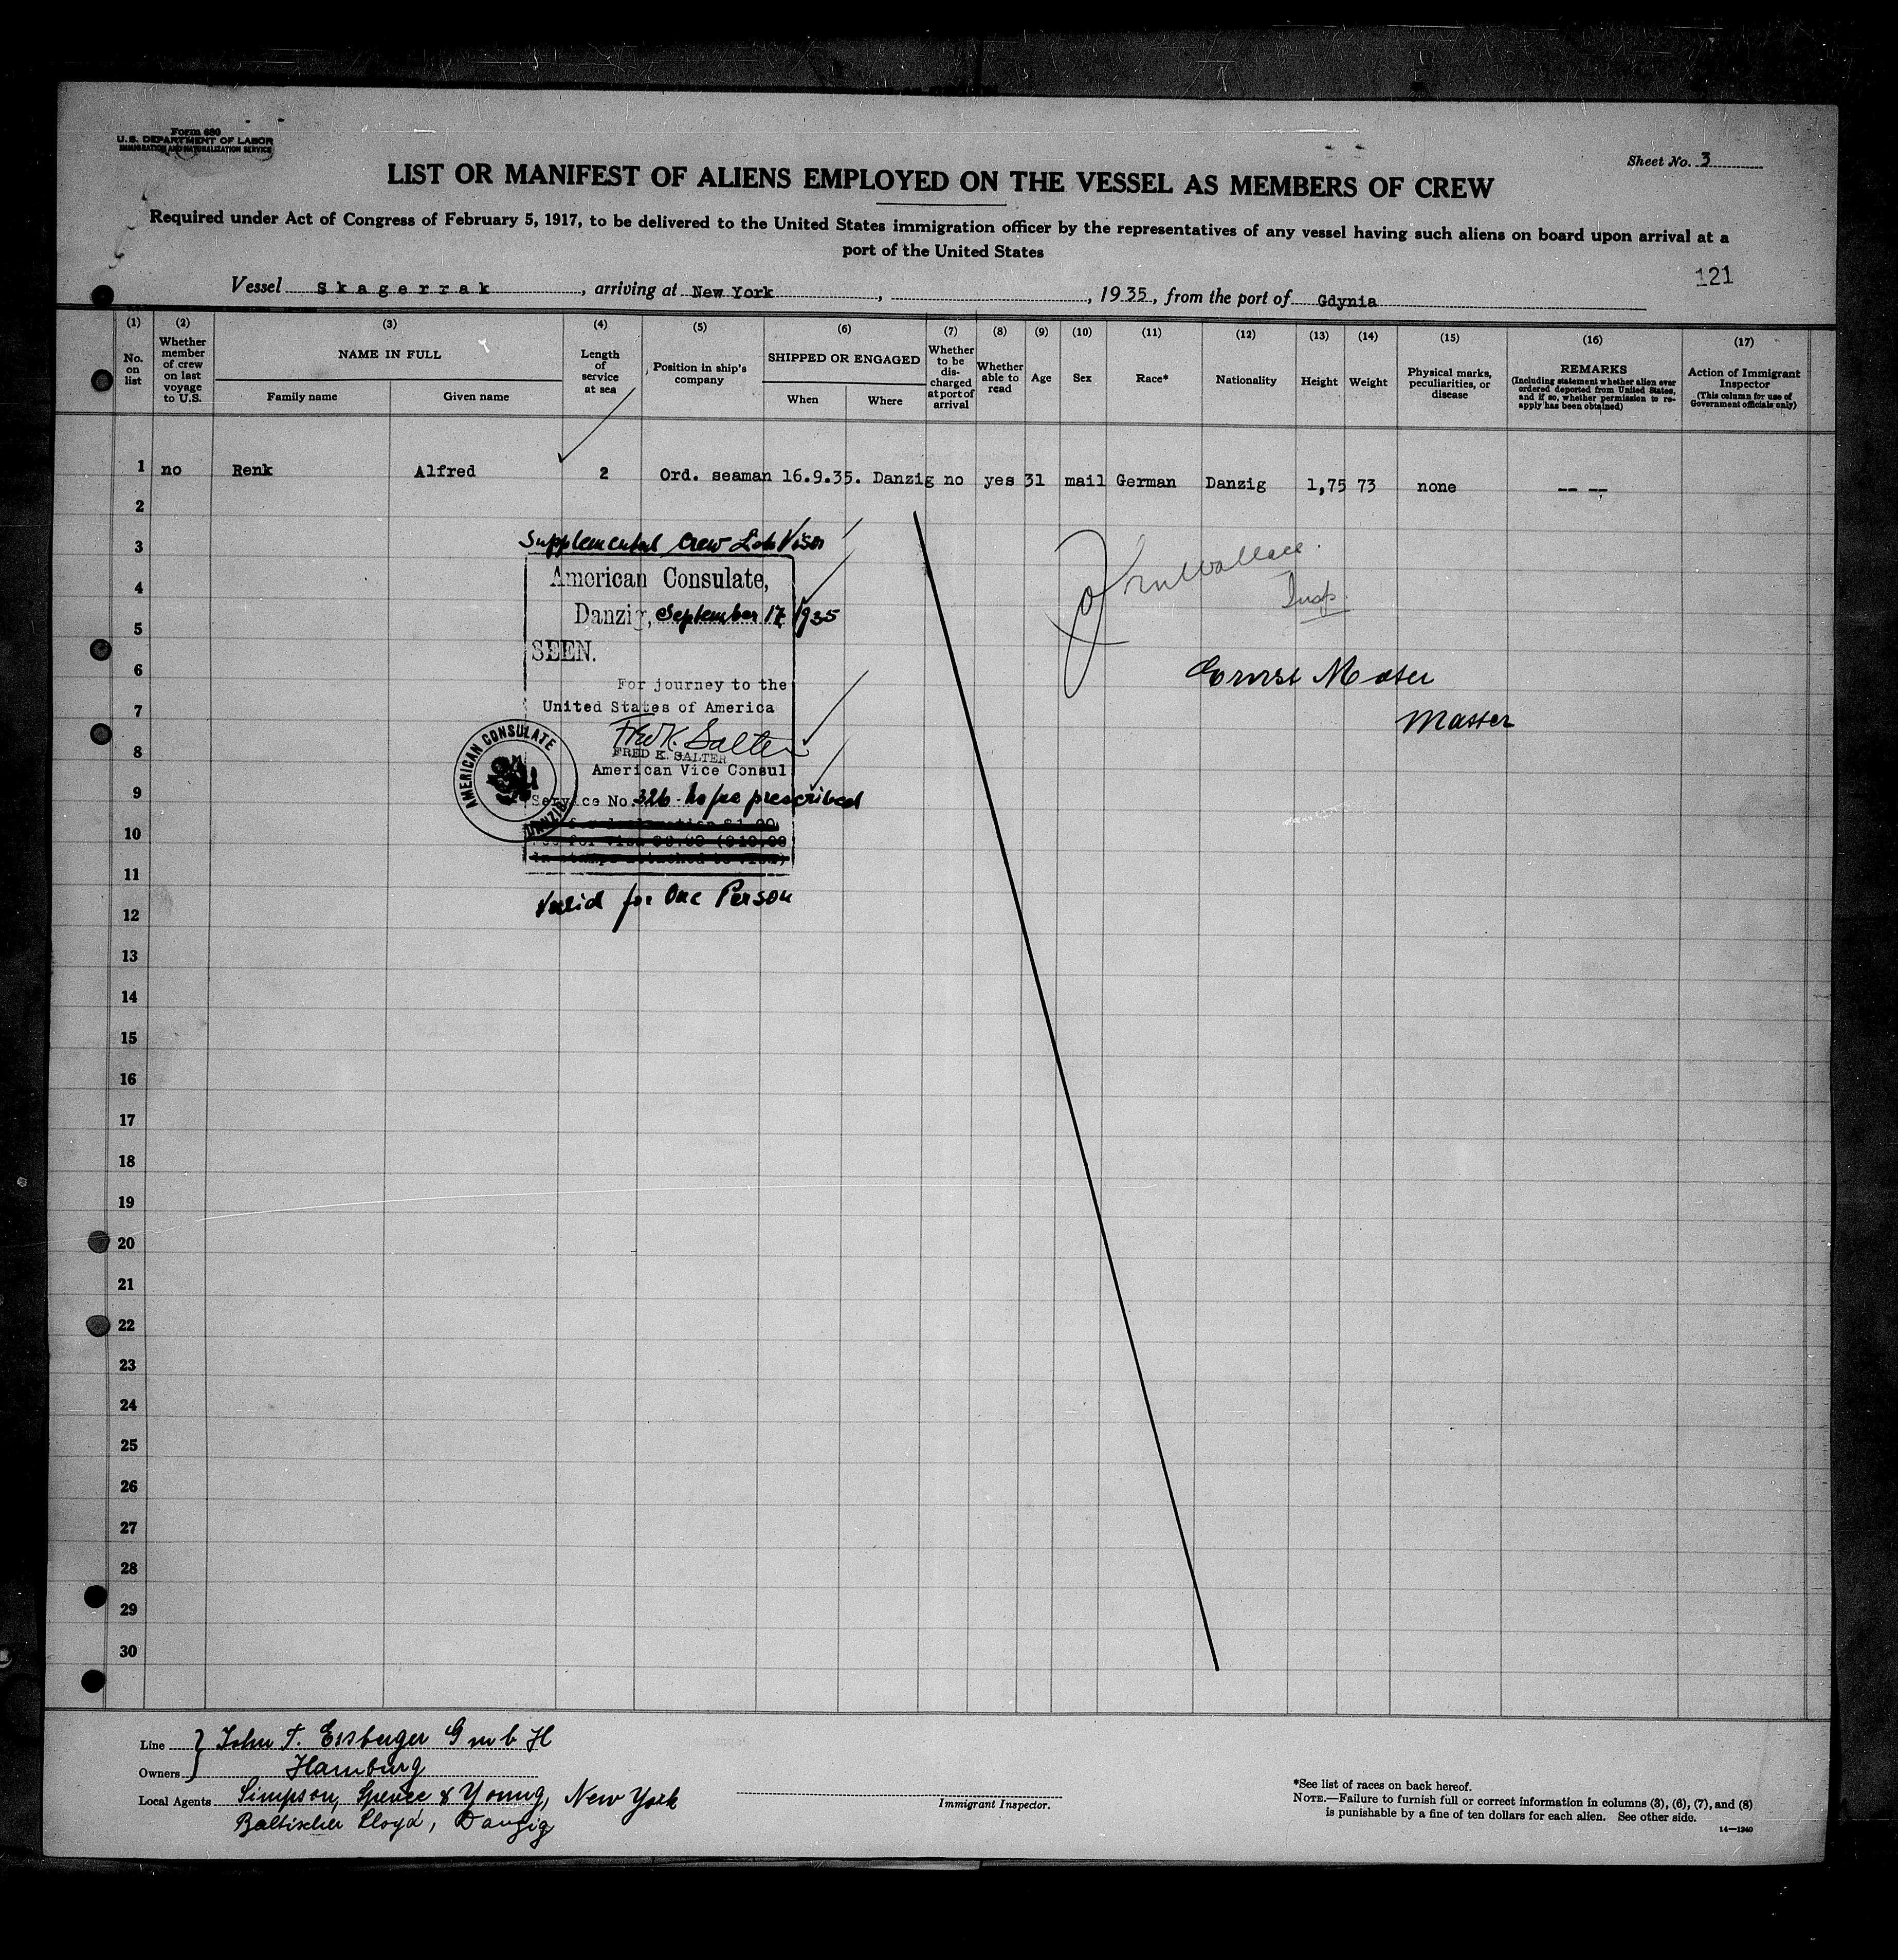 Form 680
U.S. DEPARTMENT OF LABOR
IMMIGRATION AND NATURALIZATION SERVICE
Sheet No. 3
LIST OR MANIFEST OF ALIENS EMPLOYED ON THE VESSEL AS MEMBERS OF CREW
Required under Act of Congress of February 5, 1917, to be delivered to the United States immigration officer by the representatives of any vessel having such aliens on board upon arrival at a
port of the United States
121
Vessel Skagerrak, arriving at New York, , 1935, from the port of Gdynia
(1) (2) (3) (4) (5) (6) (7) (8) (9) (10) (11) (12) (13) (14) (15) (16) (17)
No. on list
Whether member of crew on last voyage to U.S.
NAME IN FULL
Family name
Given name
Length of service at sea
Position in ship's company
SHIPPED OR ENGAGED
When
Where
Whether to be discharged at port of arrival
Whether able to read
Age
Sex
Race*
Nationality
Height
Weight
Physical marks, peculiarities, or disease
REMARKS
(Including statement whether alien ever ordered deported from United States, and if so, whether permission to re-apply has been obtained)
Action of Immigrant Inspector
(This column for use of Government officials only)
1 no Renk Alfred 2 Ord. seaman 16.9.35. Danzig no yes 31 mail German Danzig 1,75 73 none -- --
2
3
4
5
6
7
8
9
10
11
12
13
14
15
16
17
18
19
20
21
22
23
24
25
26
27
28
29
30
Supplemental Crew List Visa
American Consulate,
Danzig, September 17, 1935
SEEN.
For journey to the
United States of America
Fred K. Salter
FRED K. SALTER
American Vice Consul
Service No. 326 No fee prescribed
Valid for One Person
AMERICAN CONSULATE
DANZIG
Wallace
Insp.
Ernst
Master
Line } John T. Essberger GmbH
Owners Hamburg
Local Agents Simpson, Spence & Young, New York
Baltischer Lloyd, Danzig
Immigrant Inspector.
*See list of races on back hereof.
NOTE.—Failure to furnish full or correct information in columns (3), (6), (7), and (8)
is punishable by a fine of ten dollars for each alien. See other side.
14—1240